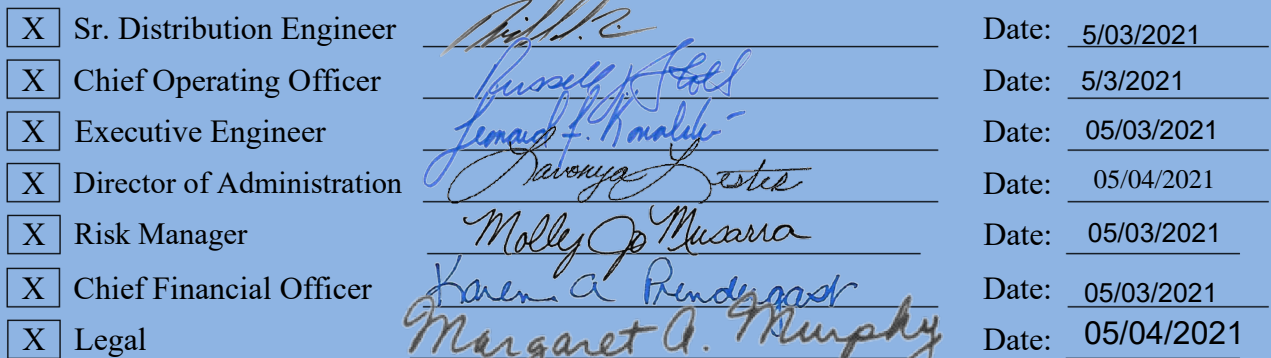 X Sr. Distribution Engineer Date: 5/03/2021
X Chief Operating Officer Russell J Date: 5/3/2021
X Executive Engineer Leonard F. Date: 05/03/2021
X Director of Administration Lavonya Lester Date: 05/04/2021
X Risk Manager Molly Jo Musarra Date: 05/03/2021
X Chief Financial Officer Karen A Prendergast Date: 05/03/2021
X Legal Margaret A. Murphy Date: 05/04/2021